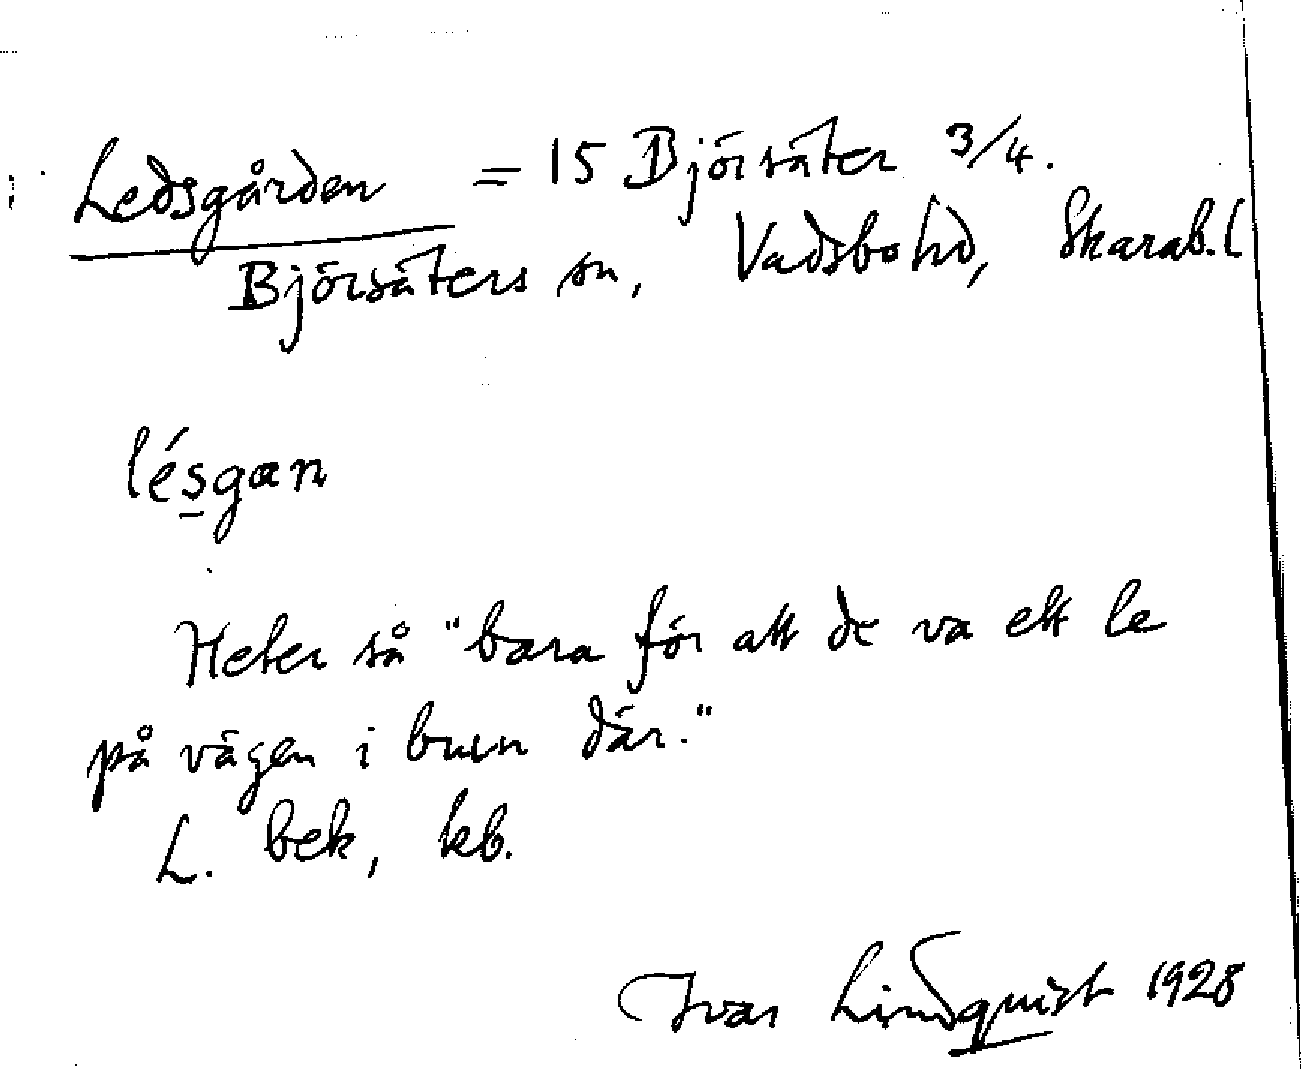 Ledsgården = 15 Björsäter 3/4.
Björsäters sn, Vadsbohd, Skarab.l
lésgan
Heter så "bara för att de va ett le
på vägen i bynn där."
L. bek, kb.
Ivar Lindquist 1928